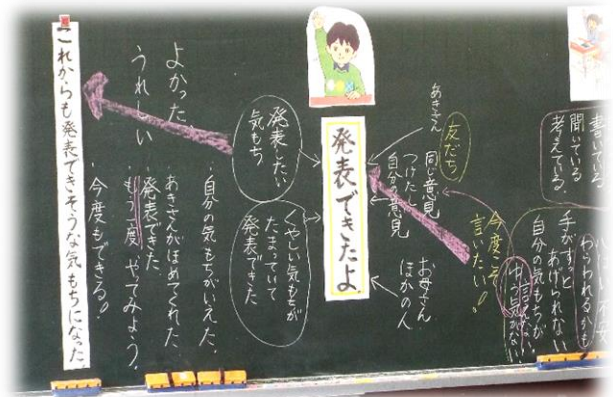 書いている
聞いている
考えている
わらわれるかも
手がずっと
あげられない
自分の気もちが
言えない
ゆう気がない
今度こそ
言いたい!!
友だち
あきさん
同じ意見
つけたし
自分の意見
お母さん
ほかの人
発表できたよ
発表したい
気もち
くやしい気もちが
たまっていて
発表できた
・自分の気もちがいえた。
・あきさんがほめてくれた
・発表できた。
・もう一度やってみよう。
・今度もできる!!
よかった
うれしい
これからも発表できそうな気もちになった。